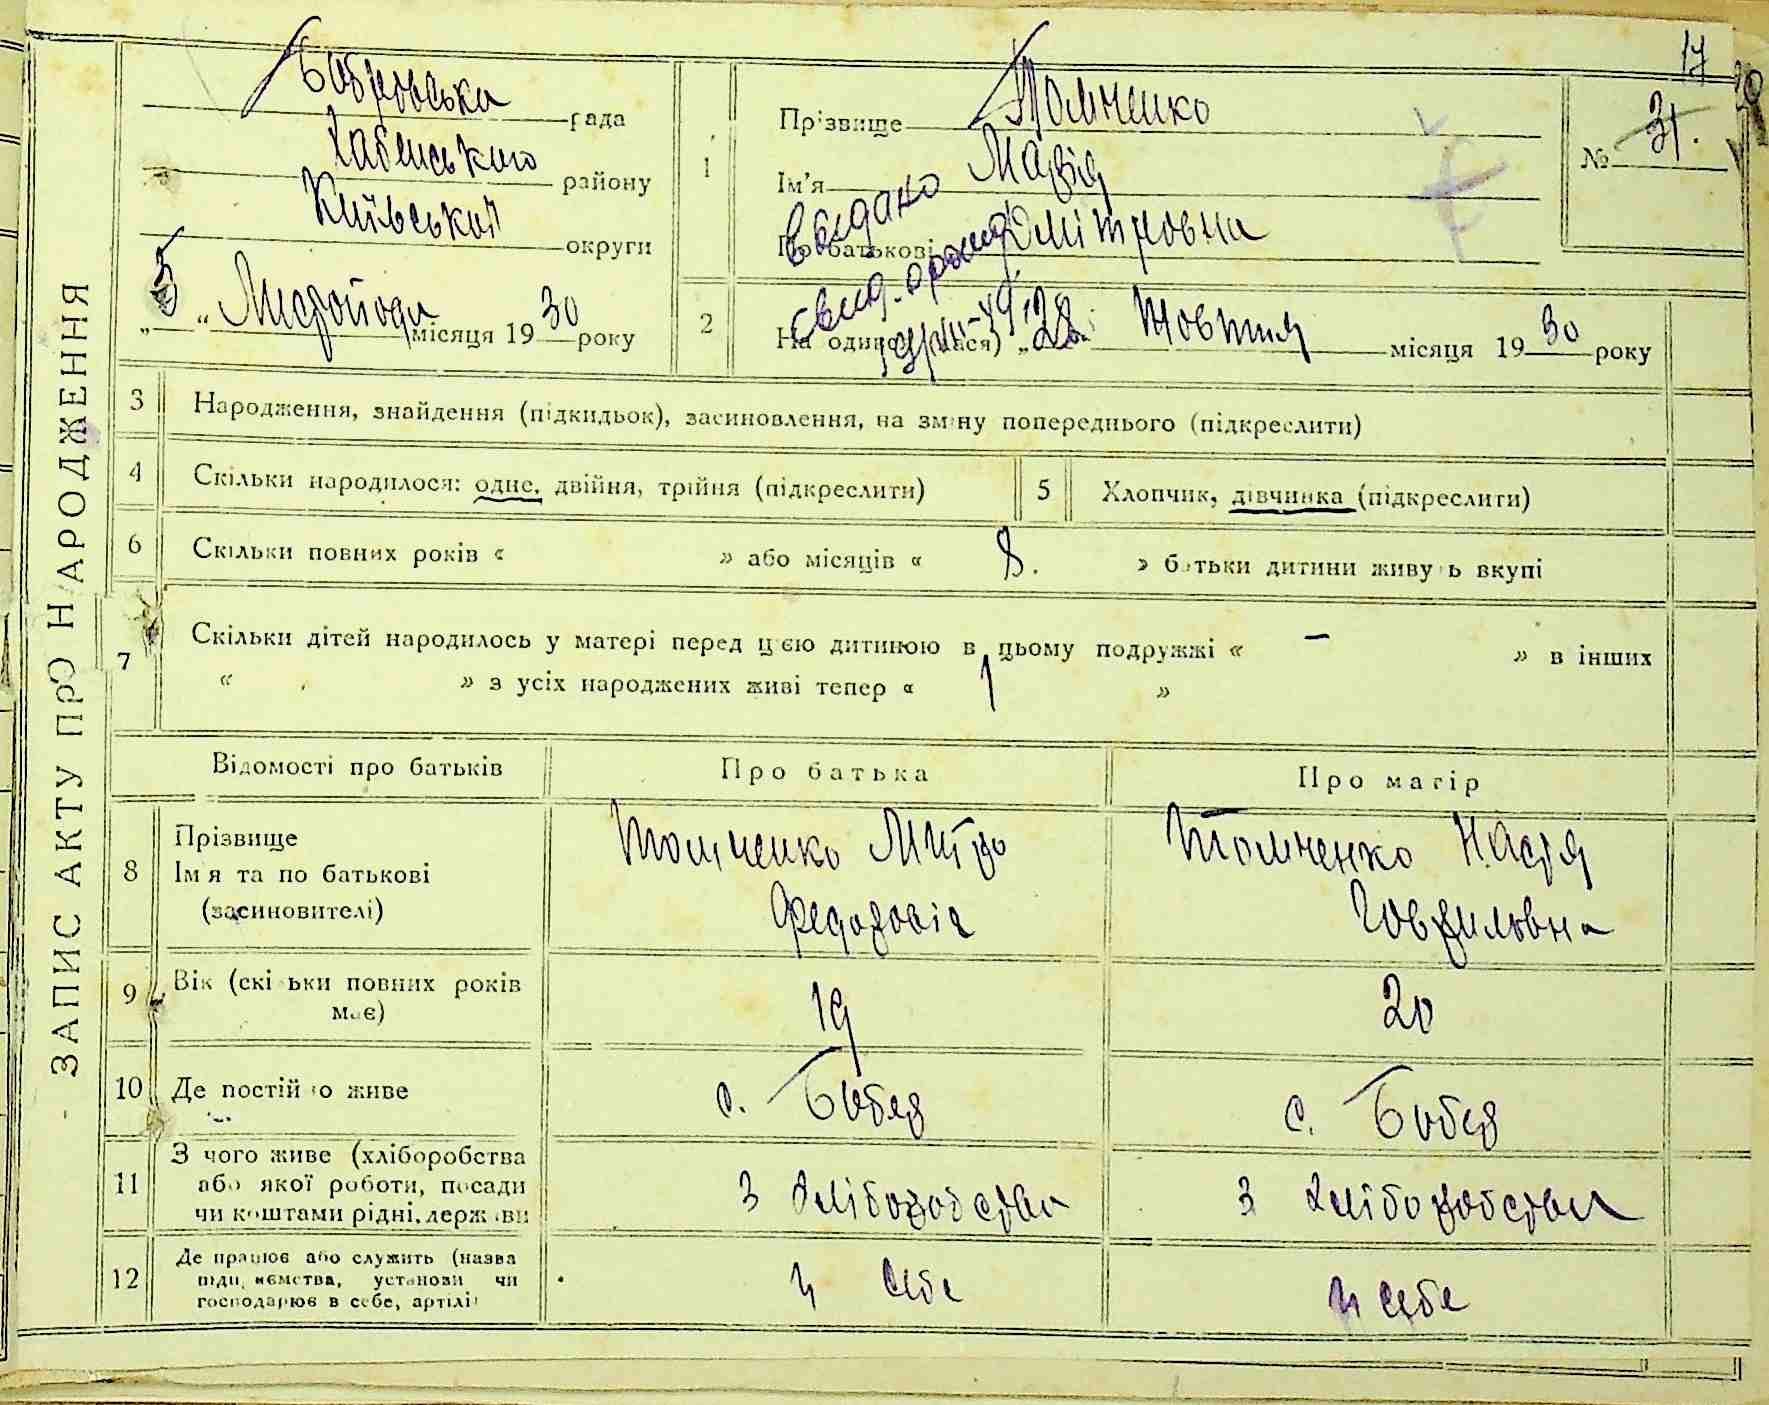 17
ЗАПИС АКТУ ПРО НАРОДЖЕННЯ
Бобрівська рада
Хабенського району
Київської округи
„ 5 “ Листопада місяця 1930 року
1
Прізвище Томченко
Ім'я Марія
По батькові Дмітровна
видано
№ 31.
2
На один (часа) „ 28 Жовтня місяця 1930 року
3 Народження, знайдення (підкидьок), засиновлення, на зміну попереднього (підкреслити)
4 Скільки народилося: одне, двійня, трійня (підкреслити)
5 Хлопчик, дівчинка (підкреслити)
6 Скільки повних років « » або місяців « 8. » батьки дитини живуть вкупі
7 Скільки дітей народилось у матері перед цією дитиною в цьому подружжі « – » в інших
« » з усіх народжених живі тепер « 1 »
Відомості про батьків Про батька Про матір
8 Прізвище
Ім'я та по батькові
(засиновителі)
Томченко Митро
Федоровіч
Томченко Настя
Говриловна
9 Вік (скільки повних років
має)
19
20
10 Де постійно живе
с. Бобер
с. Бобер
11 З чого живе (хліборобства
або якої роботи, посади
чи коштами рідні, держави
З хліборобства
З хліборобства
12 Де працює або служить (назва
підприємства, установи чи
господарює в себе, артілі
у себе
у себе